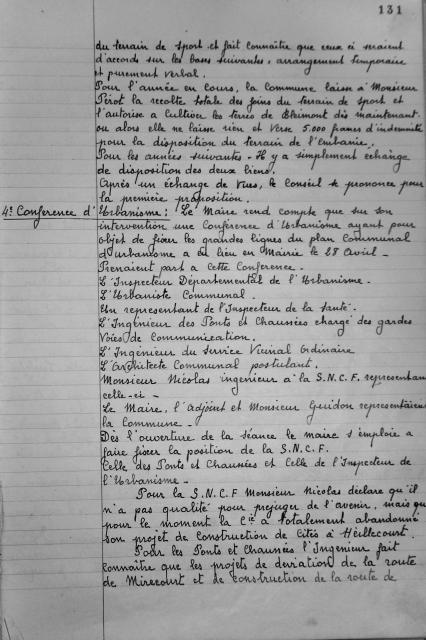 131
du terrain de sport et fait connaître que ceux ci seraient
d'accords sur les bases suivantes, arrangement temporaire
et purement verbal.
Pour l'année en cours, la Commune laisse à Monsieur
Pérot la récolte totale des foins du terrain de sport et
l'autorise à cultiver les terres de dès maintenant
ou alors elle ne laisse rien et verse 5.000 frames d'indemnité
pour la disposition du terrain de l'Embanie.
Pour les années suivantes - Il y a simplement échange
de disposition des deux liens.
Après un échange de vues, le Conseil se prononce pour
la première proposition.
4° Conférence d'Urbanisme: Le Maire rend compte que sur son
intervention une Conférence d'Urbanisme ayant pour
objet de fixer les grandes lignes du plan Communal
d'urbanisme a eu lieu en Mairie le 28 Avril -
Prenaient part à cette Conférence.
L'Inspecteur Départemental de l'Urbanisme.
L'Urbaniste Communal.
Un représentant de l'Inspecteur de la Santé.
L'Ingénieur des Ponts et Chaussées chargé des gardes
Voies de Communication.
L'Ingénieur du Service Vicinal Ordinaire
L'Architecte Communal postulant.
Monsieur Nicolas ingénieur à la S.N.C.F. représentant
celle-ci -
Le Maire, l'Adjoint et Monsieur Guidon représentaient
la Commune -
Dès l'ouverture de la séance le maire s'emploie à
faire fixer la position de la S.N.C.F.
Celle des Ponts et Chaussées et Celle de l'Inspecteur de
l'Urbanisme -
Pour la S.N.C.F Monsieur Nicolas déclare qu'il
n'a pas qualité pour préjuger de l'avenir, mais que
pour le moment la Cie a totalement abandonné
son projet de construction de Cités à Heillecourt.
Pour les Ponts et Chaussées l'Ingénieur fait
connaître que les projets de déviation de la route
de Mirecourt et de construction de la route de